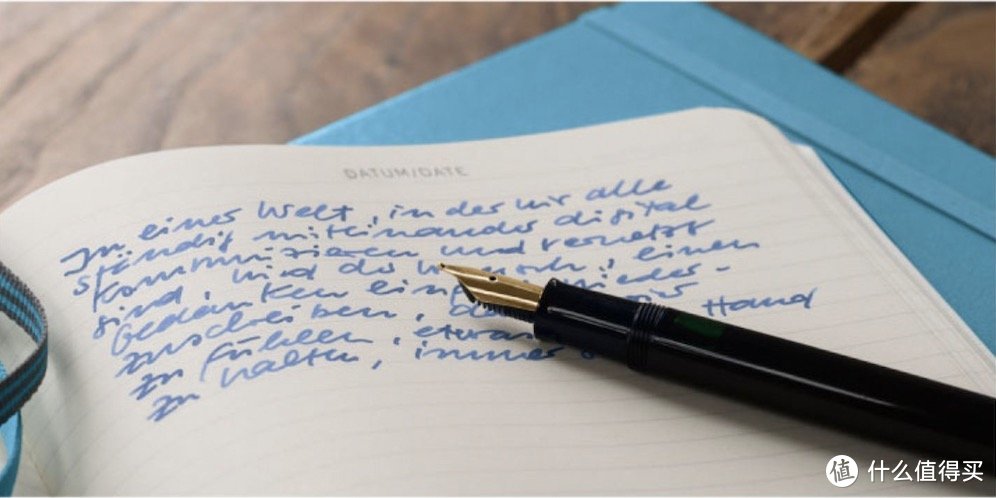 DATUM/DATE
In einer Welt, in der wir alle
ständig miteinander digital
kommunizieren und vernetzt
sind, wird der einen
Gedanken nieder-
zuschreiben,
zu fühlen, etwas Hand
zu halten, immer
什么值得买
值